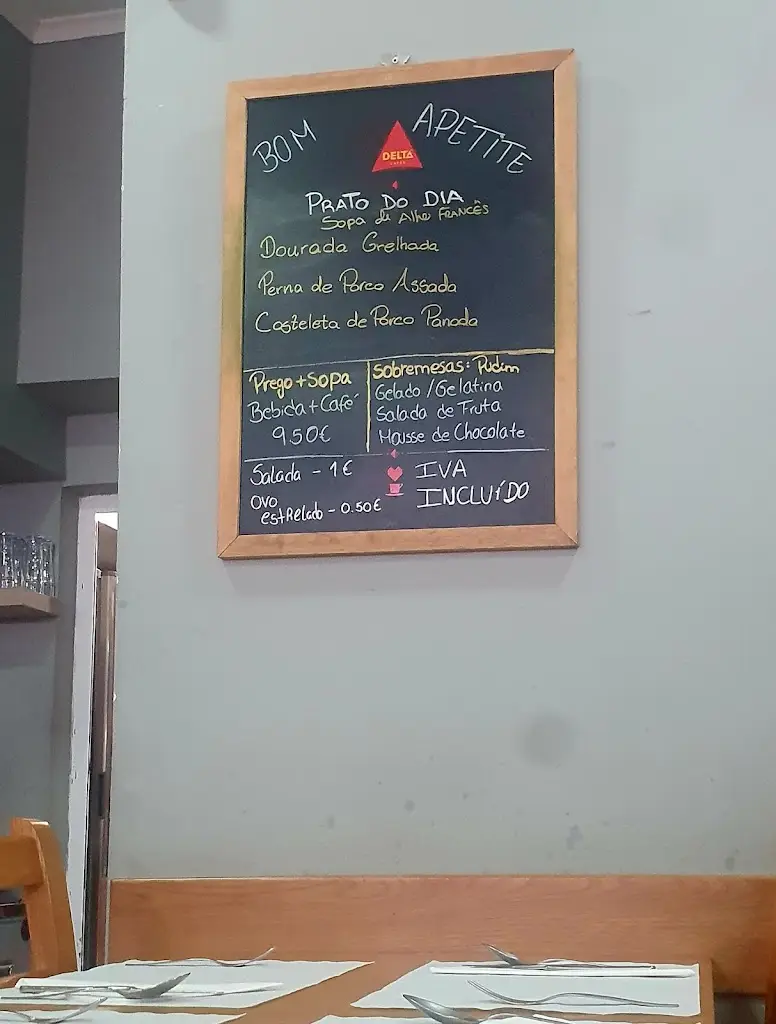 BOM APETITE
DELTA
CAFÉS
PRATO DO DIA
Sopa de Alho FRANCÊS
Dourada Grelhada
Perna de Porco Assada
Costeleta de Porco Panada
Prego + SOPA
Bebida + Café
9.50€
SOBREMESAS: Pudim
Gelado / Gelatina
Salada de Fruta
Mousse de Chocolate
Salada - 1€
OVO
estRelado - 0.50€
IVA
INCLUÍDO